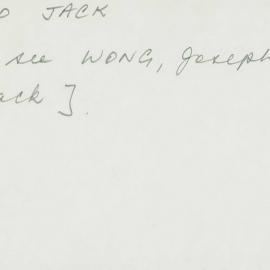 O JACK
see WONG, Joseph
ack ].